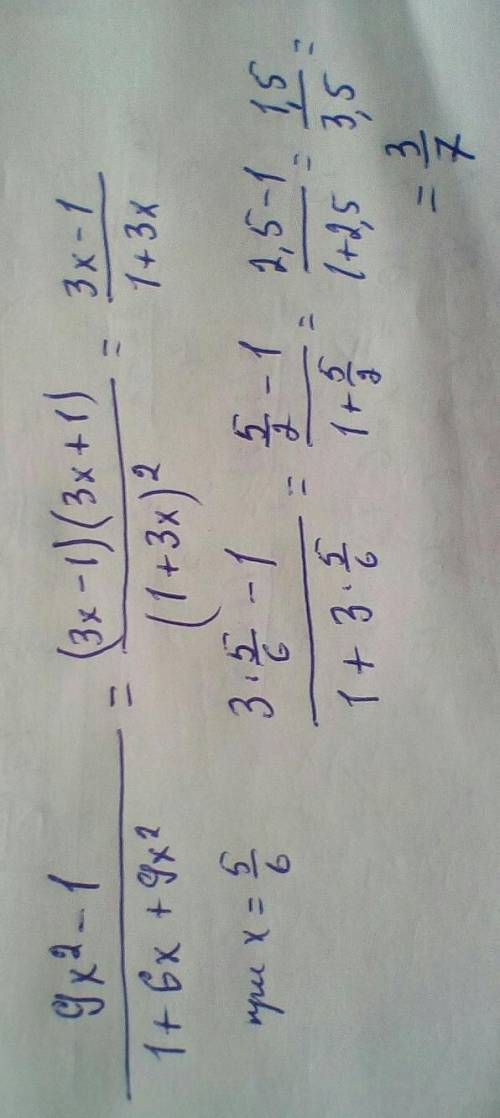 9x² - 1 / 1 + 6x + 9x² = (3x - 1)(3x + 1) / (1 + 3x)² = 3x - 1 / 1 + 3x
при x = 5/6 3 · 5/6 - 1 / 1 + 3 · 5/6 = 5/2 - 1 / 1 + 5/2 = 2,5 - 1 / 1 + 2,5 = 1,5 / 3,5 =
= 3/7